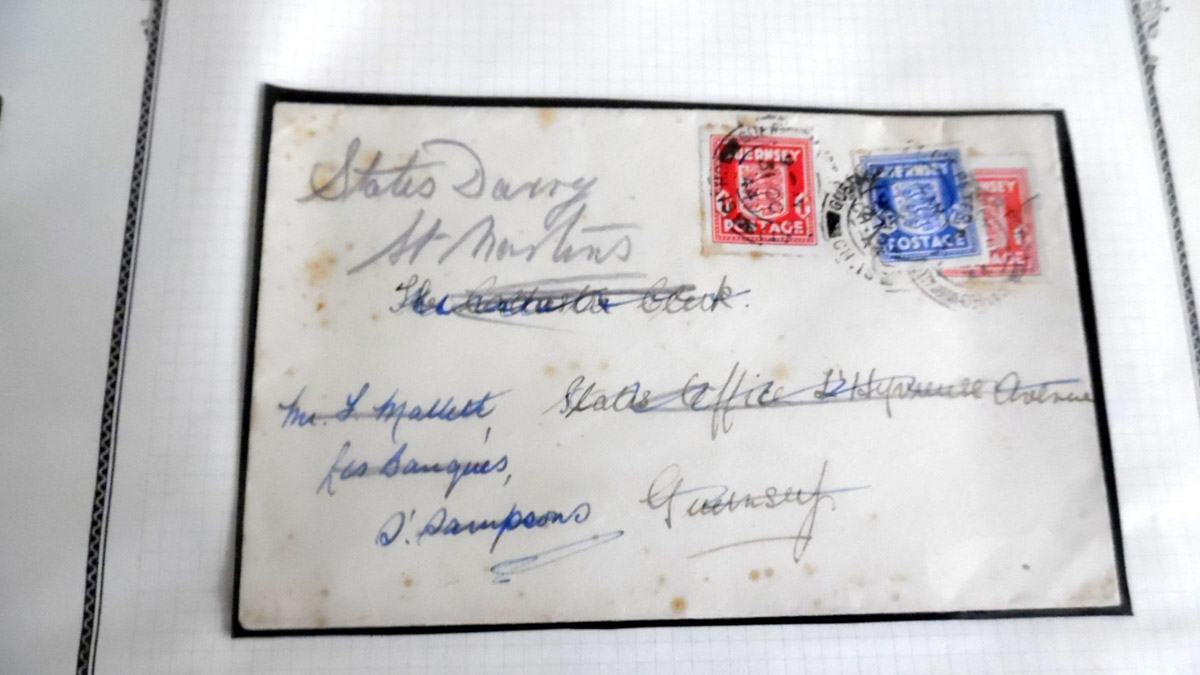 States Dairy
St Martins
The Clerk.
Mr. L. Mallett,
Les Banques,
St. Sampsons
States Office St Hyvreuse Avenue
Guernsey.
GUERNSEY
1 D 1
POSTAGE
GUERNSEY
POSTAGE
GUERNSEY
POSTAGE